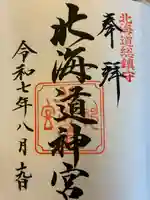 北海道総鎮守
奉拝
北海道神宮
令和七年八月十六日